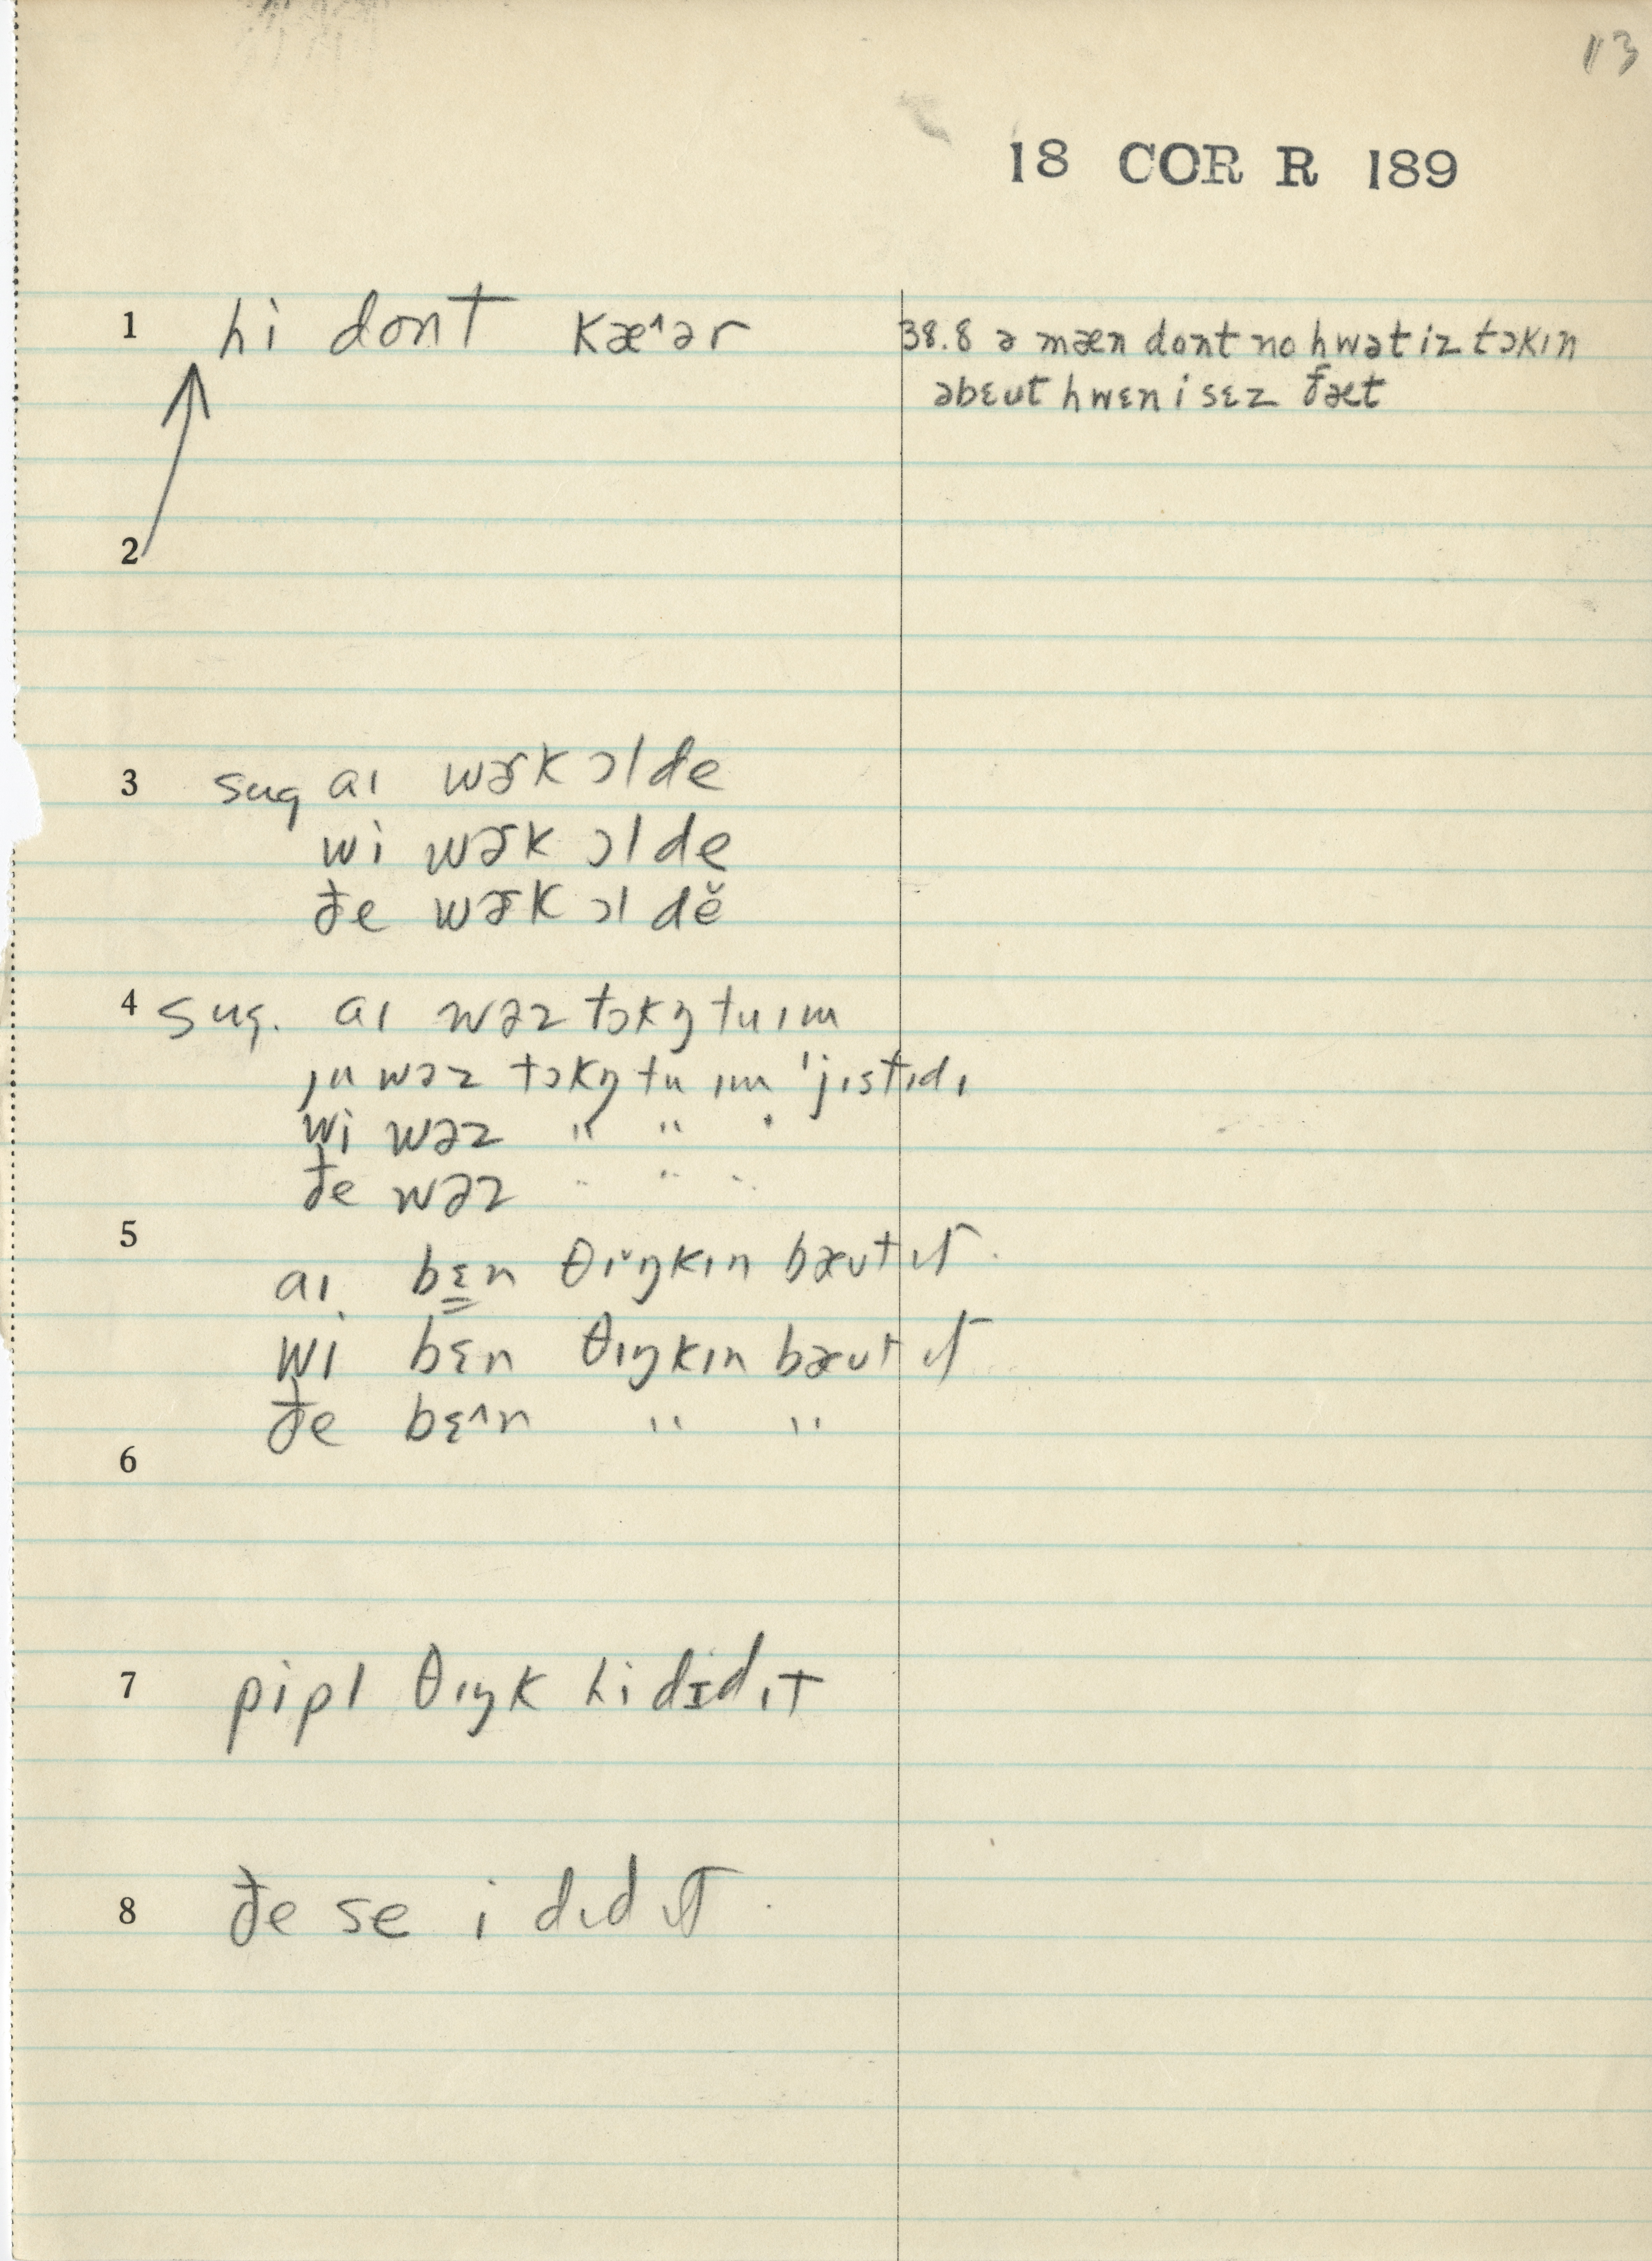 13
18 COR R 189
1 hi dont kæ^ər
38.8 ə mæn dont no hwət iz tɔkɪn
əbɛut hwɛn i sɛz ðæt
2
3 sug aɪ wɚk ɔl de
wi wɚk ɔl de
ðe wɚk ɔl dĕ
4 sug. aɪ wəz tɔkŋ tu ɪm
ju wəz tɔkŋ tu ɪm ˈjɪstɪdɪ
wi wəz " " "
ðe wəz " " "
5
aɪ bɛn θɪ̌ŋkɪn bæut ɪt.
wi bɛn θɪŋkɪn bæut ɪt
ðe bɛ^n " "
6
7 pipl θɪŋk hi dɪd ɪt
8 ðe se i dɪd ɪt.